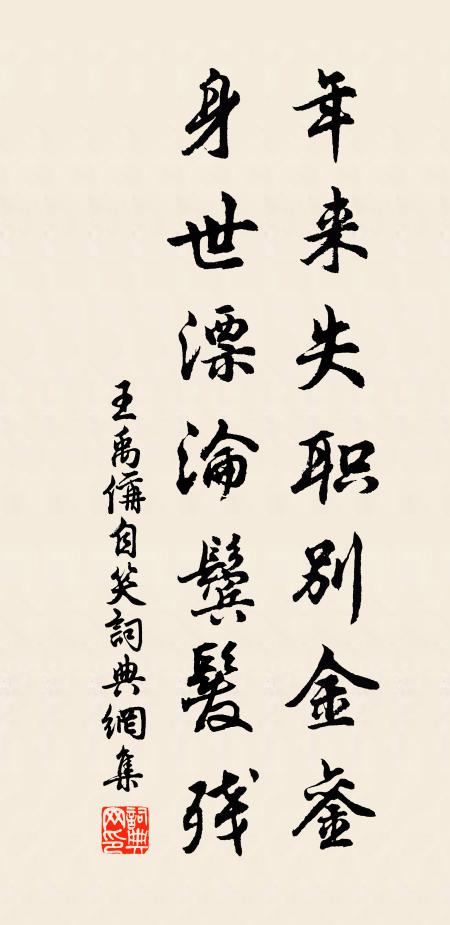 年来失职别金銮
身世漂淪鬢髮残
王禹偁自笑詞典網集
詞典
网印